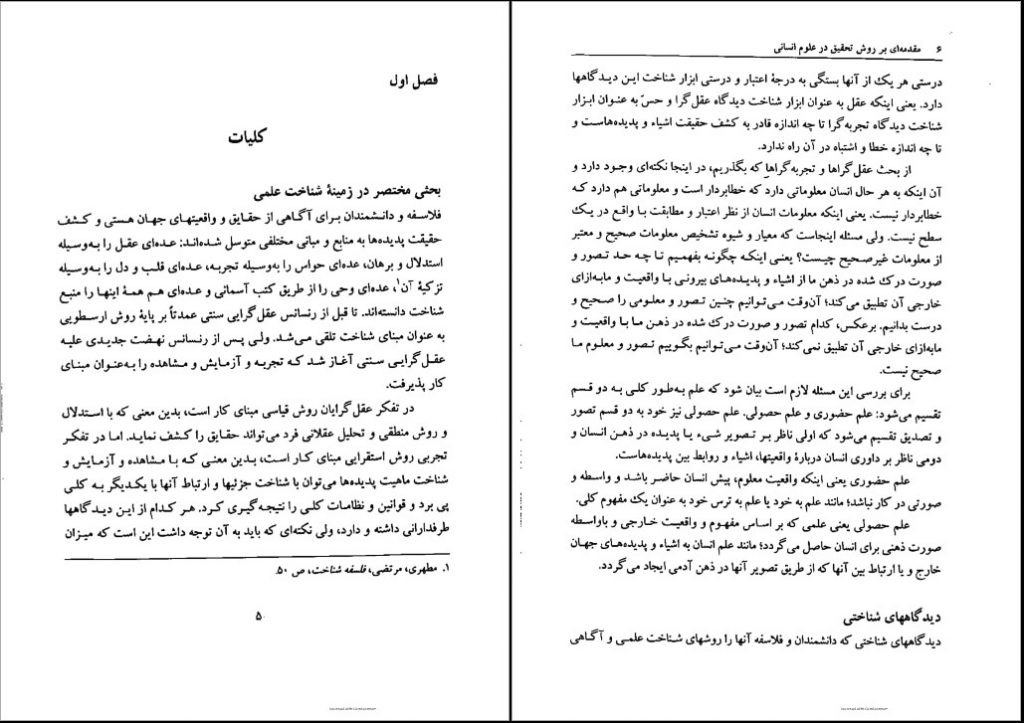 فصل اول
کلیات
بحثی مختصر در زمینهٔ شناخت علمی
فلاسفه و دانشمندان برای آگاهی از حقایق و واقعیتهای جهان هستی و کشف
حقیقت پدیده‌ها به منابع و مبانی مختلفی متوسل شده‌اند: عده‌ای عقل را به‌وسیله
استدلال و برهان، عده‌ای حواس را به‌وسیله تجربه، عده‌ای قلب و دل را به‌وسیله
تزکیهٔ آن۱، عده‌ای وحی را از طریق کتب آسمانی و عده‌ای هم همهٔ اینها را منبع
شناخت دانسته‌اند. تا قبل از رنسانس عقل‌گرایی سنتی عمدتاً بر پایهٔ روش ارسطویی
به عنوان مبنای شناخت تلقی می‌شد. ولی پس از رنسانس نهضت جدیدی علیه
عقل‌گرایی سنتی آغاز شد که تجربه و آزمایش و مشاهده را به‌عنوان مبنای
کار پذیرفت.
در تفکر عقل‌گرایان روش قیاسی مبنای کار است، بدین معنی که با استدلال
و روش منطقی و تحلیل عقلانی فرد می‌تواند حقایق را کشف نماید. اما در تفکر
تجربی روش استقرایی مبنای کار است، بدین معنی که با مشاهده و آزمایش و
شناخت ماهیت پدیده‌ها می‌توان با شناخت جزئیها و ارتباط آنها با یکدیگر به کلی
پی برد و قوانین و نظامات کلی را نتیجه‌گیری کرد. هر کدام از این دیدگاهها
طرفدارانی داشته و دارد، ولی نکته‌ای که باید به آن توجه داشت این است که میزان
۱. مطهری، مرتضی، فلسفه شناخت، ص ۵۰.
۵
۶ مقدمه‌ای بر روش تحقیق در علوم انسانی
درستی هر یک از آنها بستگی به درجهٔ اعتبار و درستی ابزار شناخت این دیدگاهها
دارد. یعنی اینکه عقل به عنوان ابزار شناخت دیدگاه عقل‌گرا و حسّ به عنوان ابزار
شناخت دیدگاه تجربه‌گرا تا چه اندازه قادر به کشف حقیقت اشیاء و پدیده‌هاست و
تا چه اندازه خطا و اشتباه در آن راه ندارد.
از بحث عقل‌گراها و تجربه‌گراها که بگذریم، در اینجا نکته‌ای وجود دارد و
آن اینکه به هر حال انسان معلوماتی دارد که خطابردار است و معلوماتی هم دارد که
خطابردار نیست. یعنی اینکه معلومات انسان از نظر اعتبار و مطابقت با واقع در یک
سطح نیست. ولی مسئله اینجاست که معیار و شیوه تشخیص معلومات صحیح و معتبر
از معلومات غیرصحیح چیست؟ یعنی اینکه چگونه بفهمیم تا چه حد تصور و
صورت درک شده در ذهن ما از اشیاء و پدیده‌های بیرونی با واقعیت و مابه‌ازای
خارجی آن تطبیق می‌کند؛ آن‌وقت می‌توانیم چنین تصور و معلومی را صحیح و
درست بدانیم. برعکس، کدام تصور و صورت درک شده در ذهن ما با واقعیت و
مابه‌ازای خارجی آن تطبیق نمی‌کند؛ آن‌وقت می‌توانیم بگوییم تصور و معلوم ما
صحیح نیست.
برای بررسی این مسئله لازم است بیان شود که علم به‌طور کلی به دو قسم
تقسیم می‌شود: علم حضوری و علم حصولی. علم حصولی نیز خود به دو قسم تصور
و تصدیق تقسیم می‌شود که اولی ناظر بر تصویر شیء یا پدیده در ذهن انسان و
دومی ناظر بر داوری انسان دربارهٔ واقعیتها، اشیاء و روابط بین پدیده‌هاست.
علم حضوری یعنی اینکه واقعیت معلوم، پیش انسان حاضر باشد و واسطه و
صورتی در کار نباشد؛ مانند علم به خود یا علم به ترس خود به عنوان یک مفهوم کلی.
علم حصولی یعنی علمی که بر اساس مفهوم و واقعیت خارجی و باواسطه
صورت ذهنی برای انسان حاصل می‌گردد؛ مانند علم انسان به اشیاء و پدیده‌های جهان
خارج و یا ارتباط بین آنها که از طریق تصویر آنها در ذهن آدمی ایجاد می‌گردد.
دیدگاههای شناختی
دیدگاههای شناختی که دانشمندان و فلاسفه آنها را روشهای شناخت علمی و آگاهی